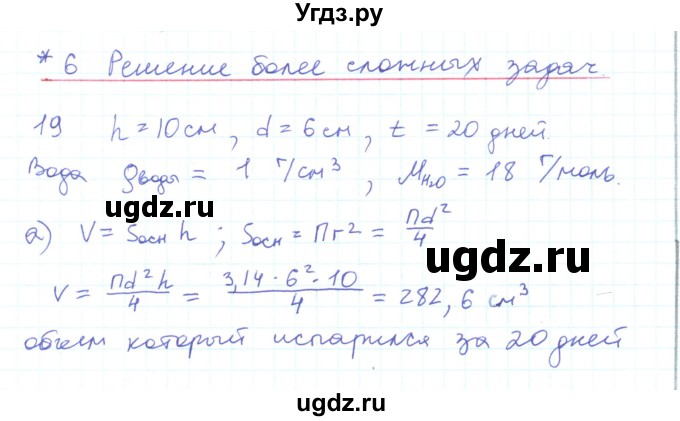 Угдз.ру
* 6 Решение более сложных задач.
19 h = 10 см, d = 6 см, t = 20 дней.
Вода ρводы = 1 г/см³, μH₂O = 18 г/моль.
ugdz.ru
а) V = Sосн h ; Sосн = Пr² = Пd²/4
ugdz.ru
V = Пd²h/4 = 3,14 · 6² · 10/4 = 282,6 см³
объем который испарился за 20 дней
ugdz.ru